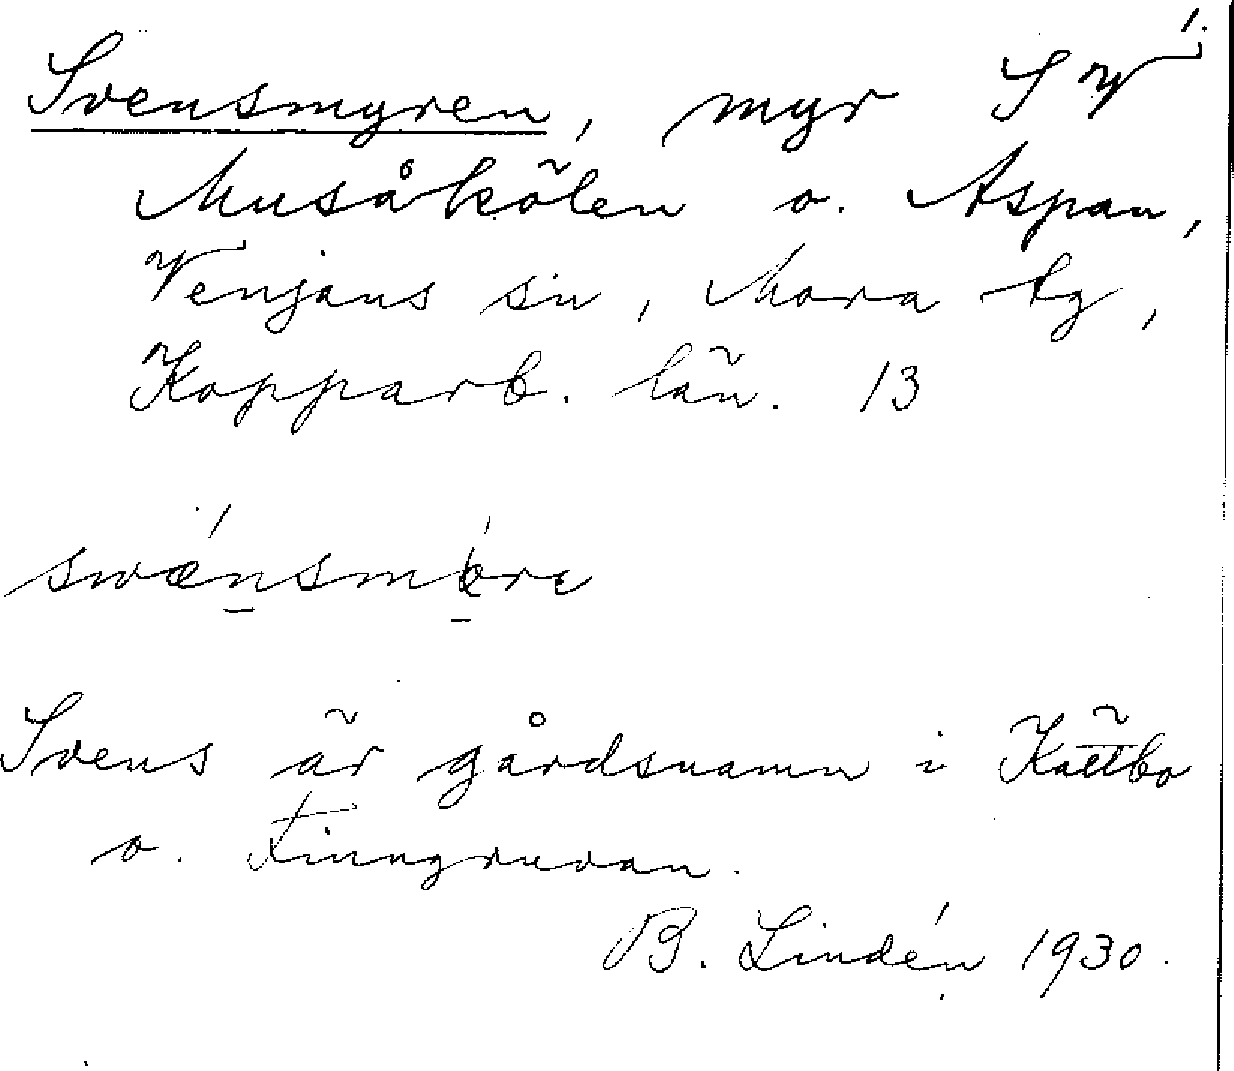 Svensmyren, myr SV i.
Musåkölen o. Aspan,
Venjans sn, Mora tg,
Kopparb. län. 13
swænsmøre
Svens är gårdsnamn i Kättbo
o. Finngruvan.
B. Lindén 1930.